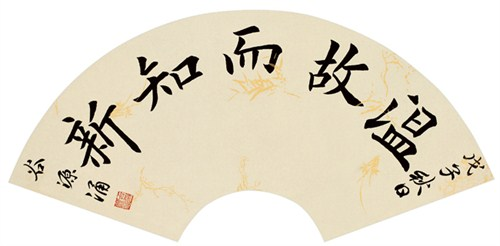 戊子秋日
温故而知新
谷源涌